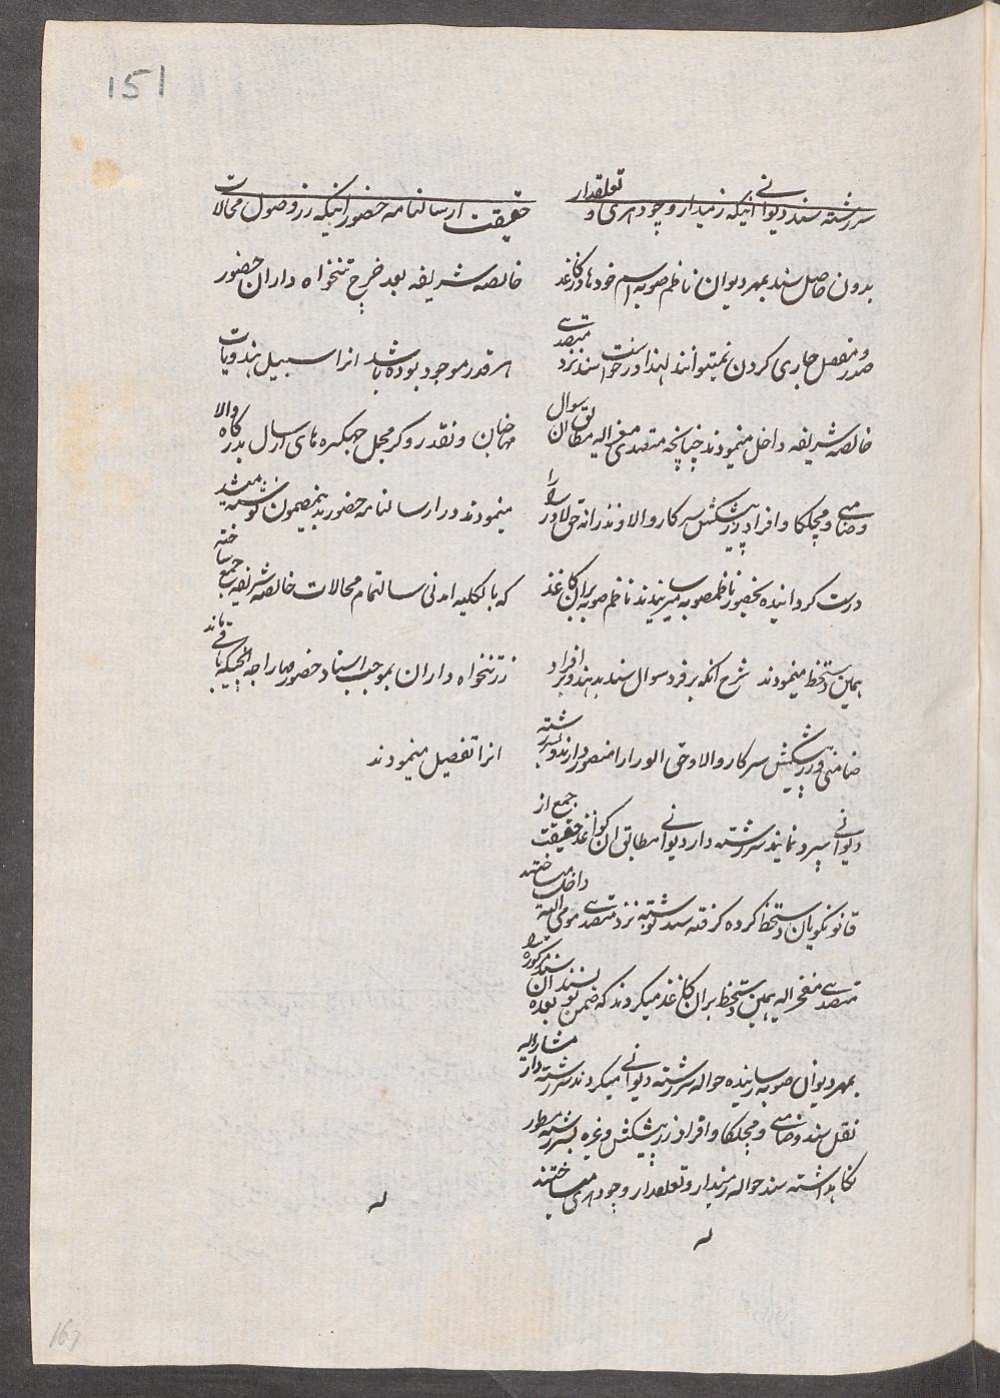 151
سررشته سند دیوانی اینکه زمیدار و چودهری و تعلقدار
بدون حاصل سند بمهر دیوان ناظم صوبه اسم خودها در کاغذ
صدر و مفصل جاری کردن نمیتوانند لهذا درخواست سند نزد متصدی
خالصه شریفه داخل مینمودند چنانچه متصدی مغزالیه مطابق ان سوال
و ضامنی و مچلکا و افراد زر پیشکش سرکار والا و نذرانه حق لاوزرا
درست کردانیده بحضور ناظم صوبه میرسانیدند ناظم صوبه بران کاغذ
بهمین دستخط مینمودند شرح انکه بر فرد سوال سند بدهند و بر افراد
ضامنی و زر پیشکش سرکار والا و حق الوزارا منصور دارند و بسررشته
دیوانی سپرد نمایند سررشته دار دیوانی مطابق ان کواغذ حقیقت جمع از
قانونکویان دستخط کرده کرفته سند نوشته نزد متصدی مومی الیه داخل میساختند
متصدی مفخرالیه بهمین دستخط بران کاغذ میکردند که ضمن نویسند ان سند مذکوره را بعده
بمهر دیوان صوبه رسانیده حواله سررشته دیوانی میکردند سررشته دار مشارالیه
نقل سند و ضامنی و مچلکا و افراد زر پیشکش وغیره بسررشته مسطور
نکاهداشته سند حواله زمیدار و تعلقدار و چودهری میساختند
حقیقت ارسالنامه حضور اینکه زر وصول محالات
خالصه شریفه بعد خرچ تنخواه داران حضور
هر قدر موجود بوده باشد انرا سبیل هندویات
مهاجنان و نقد روکر محمل چهکره های ارسال بدرکاه والا
مینمودند و ارسالنامه حضور بدینمضمون نوشته میشد
که بالکلیه امدنی سالتمام محالات خالصه شریفه جمع ساخته
زر تنخواه داران بموجب اسناد حضور مهاراجه انچیکه باقی ماند
انرا تفصیل مینمودند
167